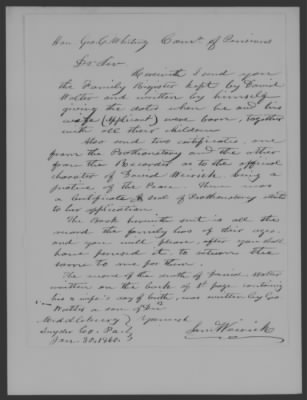 Hon Geo. C. Whiting Com's of Pensions
Dr Sir
Herewith I send you
the Family Register kept by Daniel
Walter and written by himself
giving the dates when he and his
wife (applicant) were born, together
with all their children
Also send two certificates, one
from the Prothonotary and the other
from the Recorder as to the official
character of Daniel Weirick being a
justice of the Peace. There was
a Certificate & seal of Prothonotary
to her application
The Book herewith sent is all the
record the family has of their ages.
and you will please, after you shall
have perused it, to return the
same to me for them.
The record of the death of Daniel Walter
written on the back of 1st page containing
his & wife's day of birth, was written by Geo
Walter a son of
Middleburg
Snyder Co. Pa
Jan. 30, 1860.
Sam Weirick